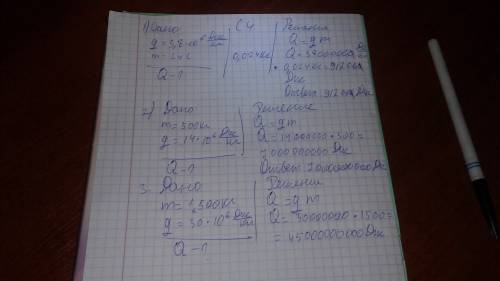 1) Дано
g = 3,8·10⁶ Дж/кг
m = 24г
Q - ?
СИ
0,024кг
Решение
Q = gm
Q = 38000000 Дж/кг
· 0,024кг = 912000
Дж
Ответ: 912000 Дж
2) Дано
m = 500кг
g = 14·10⁶ Дж/кг
Q - ?
Решение
Q = gm
Q = 14000000 · 500 =
7000000000 Дж
Ответ: 7000000000 Дж
3. Дано
m = 1500кг
g = 30·10⁶ Дж/кг
Q - ?
Решение
Q = gm
Q = 30000000 · 1500 =
= 45000000000 Дж